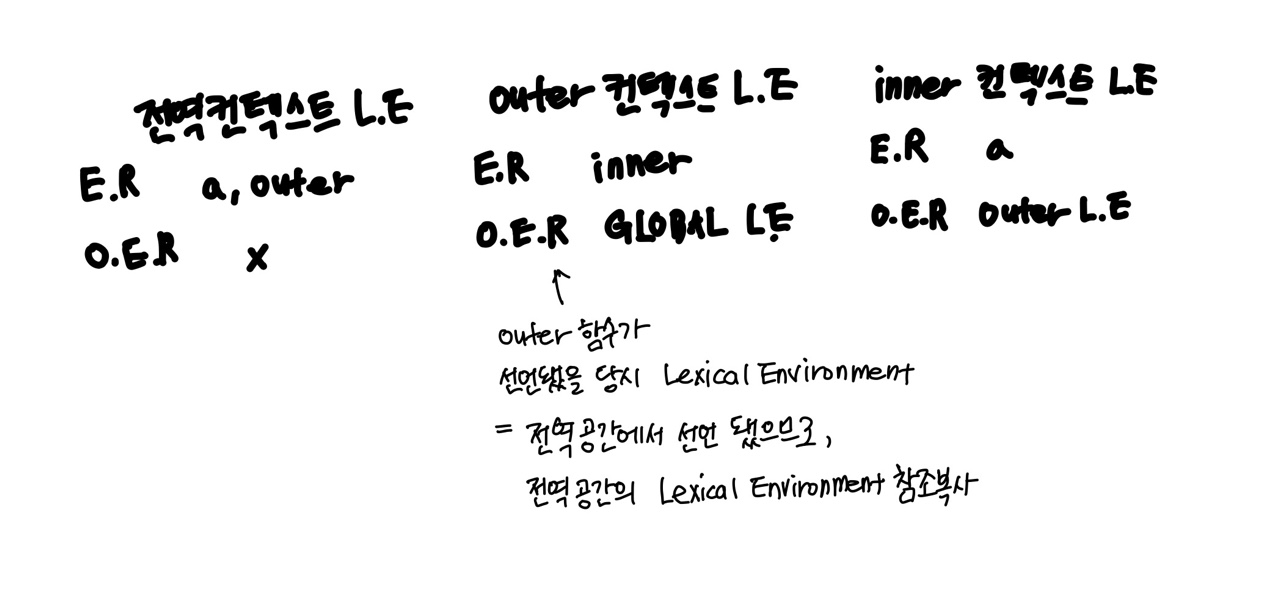 전역컨텍스트 L.E
E.R a, outer
O.E.R x
outer 컨텍스트 L.E
E.R inner
O.E.R GLOBAL L.E
inner 컨텍스트 L.E
E.R a
O.E.R outer L.E
↑
outer 함수가
선언됐을 당시 Lexical Environment
= 전역공간에서 선언 됐으므로,
전역공간의 Lexical Environment 참조복사